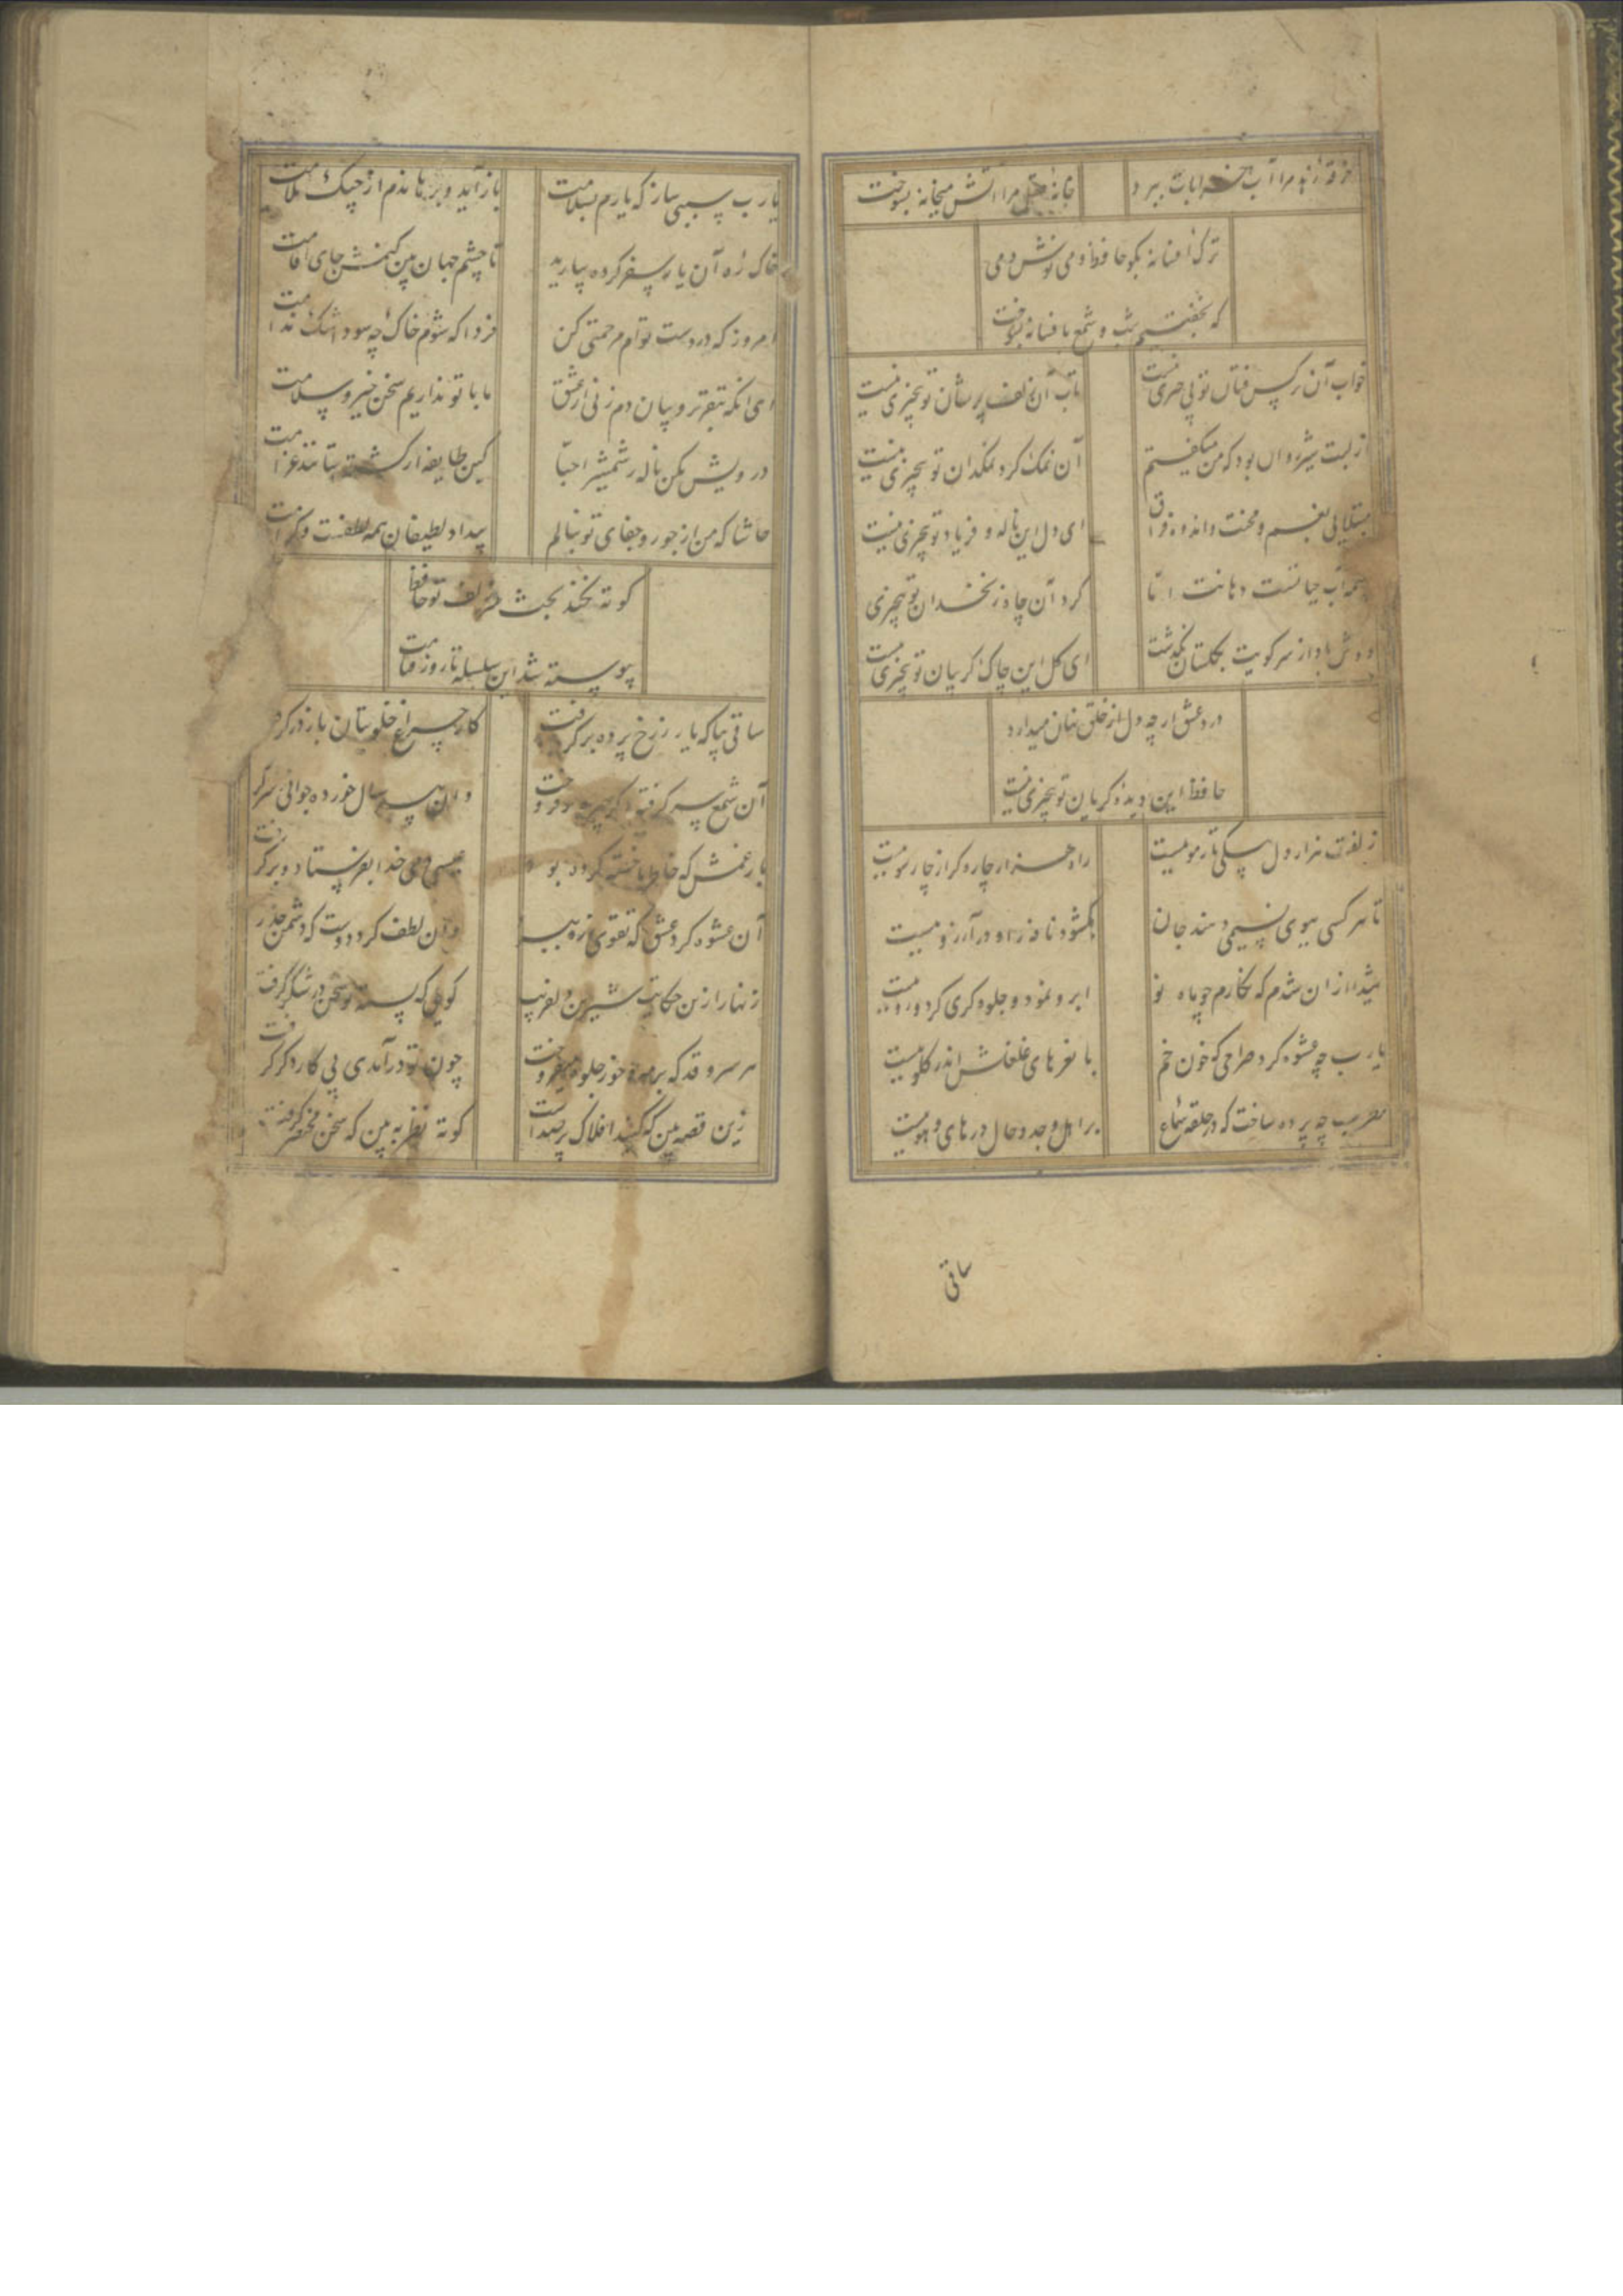 خرقه زهد مرا آب خرابات ببرد خانه عقل مرا آتش میخانه بسوخت
ترک افسانه بگو حافظ و می نوش دمی
که نخفتیم شب و شمع بافسانه بسوخت
خواب آن نرگس فتان تو بی چیزی نیست تاب آن زلف پریشان تو بیچیزی نیست
از لبت شیر روان بود که من میگفتم آن نمک گرد نمکدان تو بیچیزی نیست
مبتلایی بغم و محنت و اندوه فراق ای دل این ناله و فریاد تو بیچیزی نیست
چشمه آب حیاتست دهانت اما گرد آن چاه زنخدان تو بیچیزی
دوش باد از سر کویت بگلستان بگذشت ای گل این چاک گریبان تو بیچیزی نیست
درد عشق ار چه دل از خلق نهان میدارد
حافظ این دیده گریان تو بیچیزی نیست
زلفت هزار دل بیکی تار مو ببست راه هزار چاره گر از چار سو ببست
تا هر کسی ببوی نسیمی دهند جان بگشود نافه را و در آرزو ببست
شیدا از ان شدم که نگارم چو ماه نو ابرو نمود و جلوه گری کرد و رو ببست
یا رب چه عشوه کرد صراحی که خون خم با نغرهای غلغلش اندر گلو ببست
مطرب چه پرده ساخت که در حلقه سماع بر اهل وجد و حال در های و هو ببست
ساقی
یا رب سببی ساز که یارم بسلامت باز آید و برهاندم از چنگ ملامت
خاک ره آن یار سفر کرده بیارید تا چشم جهان بین کنمش جای اقامت
امروز که در دست توام مرحمتی کن فردا که شوم خاک چه سود اشک ندامت
ای آنکه بتقریر و بیان دم زنی از عشق ما با تو نداریم سخن خیر و سلامت
درویش مکن ناله ز شمشیر احبا کین طایفه از کشته ستانند غرامت
حاشا که من از جور و جفای تو بنالم بیداد لطیفان همه لطفست و کرامت
کوته نکند بحث سر زلف تو حافظ
پیوسته شد این سلسله تا روز قیامت
ساقی بیا که یار ز رخ پرده برگرفت کار چراغ خلوتیان باز در گرفت
آن شمع سر گرفته دگر چهره بر فروخت وان پیر سال خورده جوانی ز سر گر
بار غمش که خاطر ما خسته کرده بود عیسی دمی خدا بفرستاد و بر گرفت
آن عشوه کرد عشق که تقوی ز ره ببرد وان لطف کرد دوست که دشمن حذر
زنهار ازین حکایت شیرین دلفریب گویی که پسته تو سخن در شکر گرفت
هر سرو قد که بر مه و خور جلوه میفروخت چون تو در آمدی پی کار دگر گرفت
زین قصه بین که گنبد افلاک پر صداست کوته نظر به بین که سخن مختصر گرفت